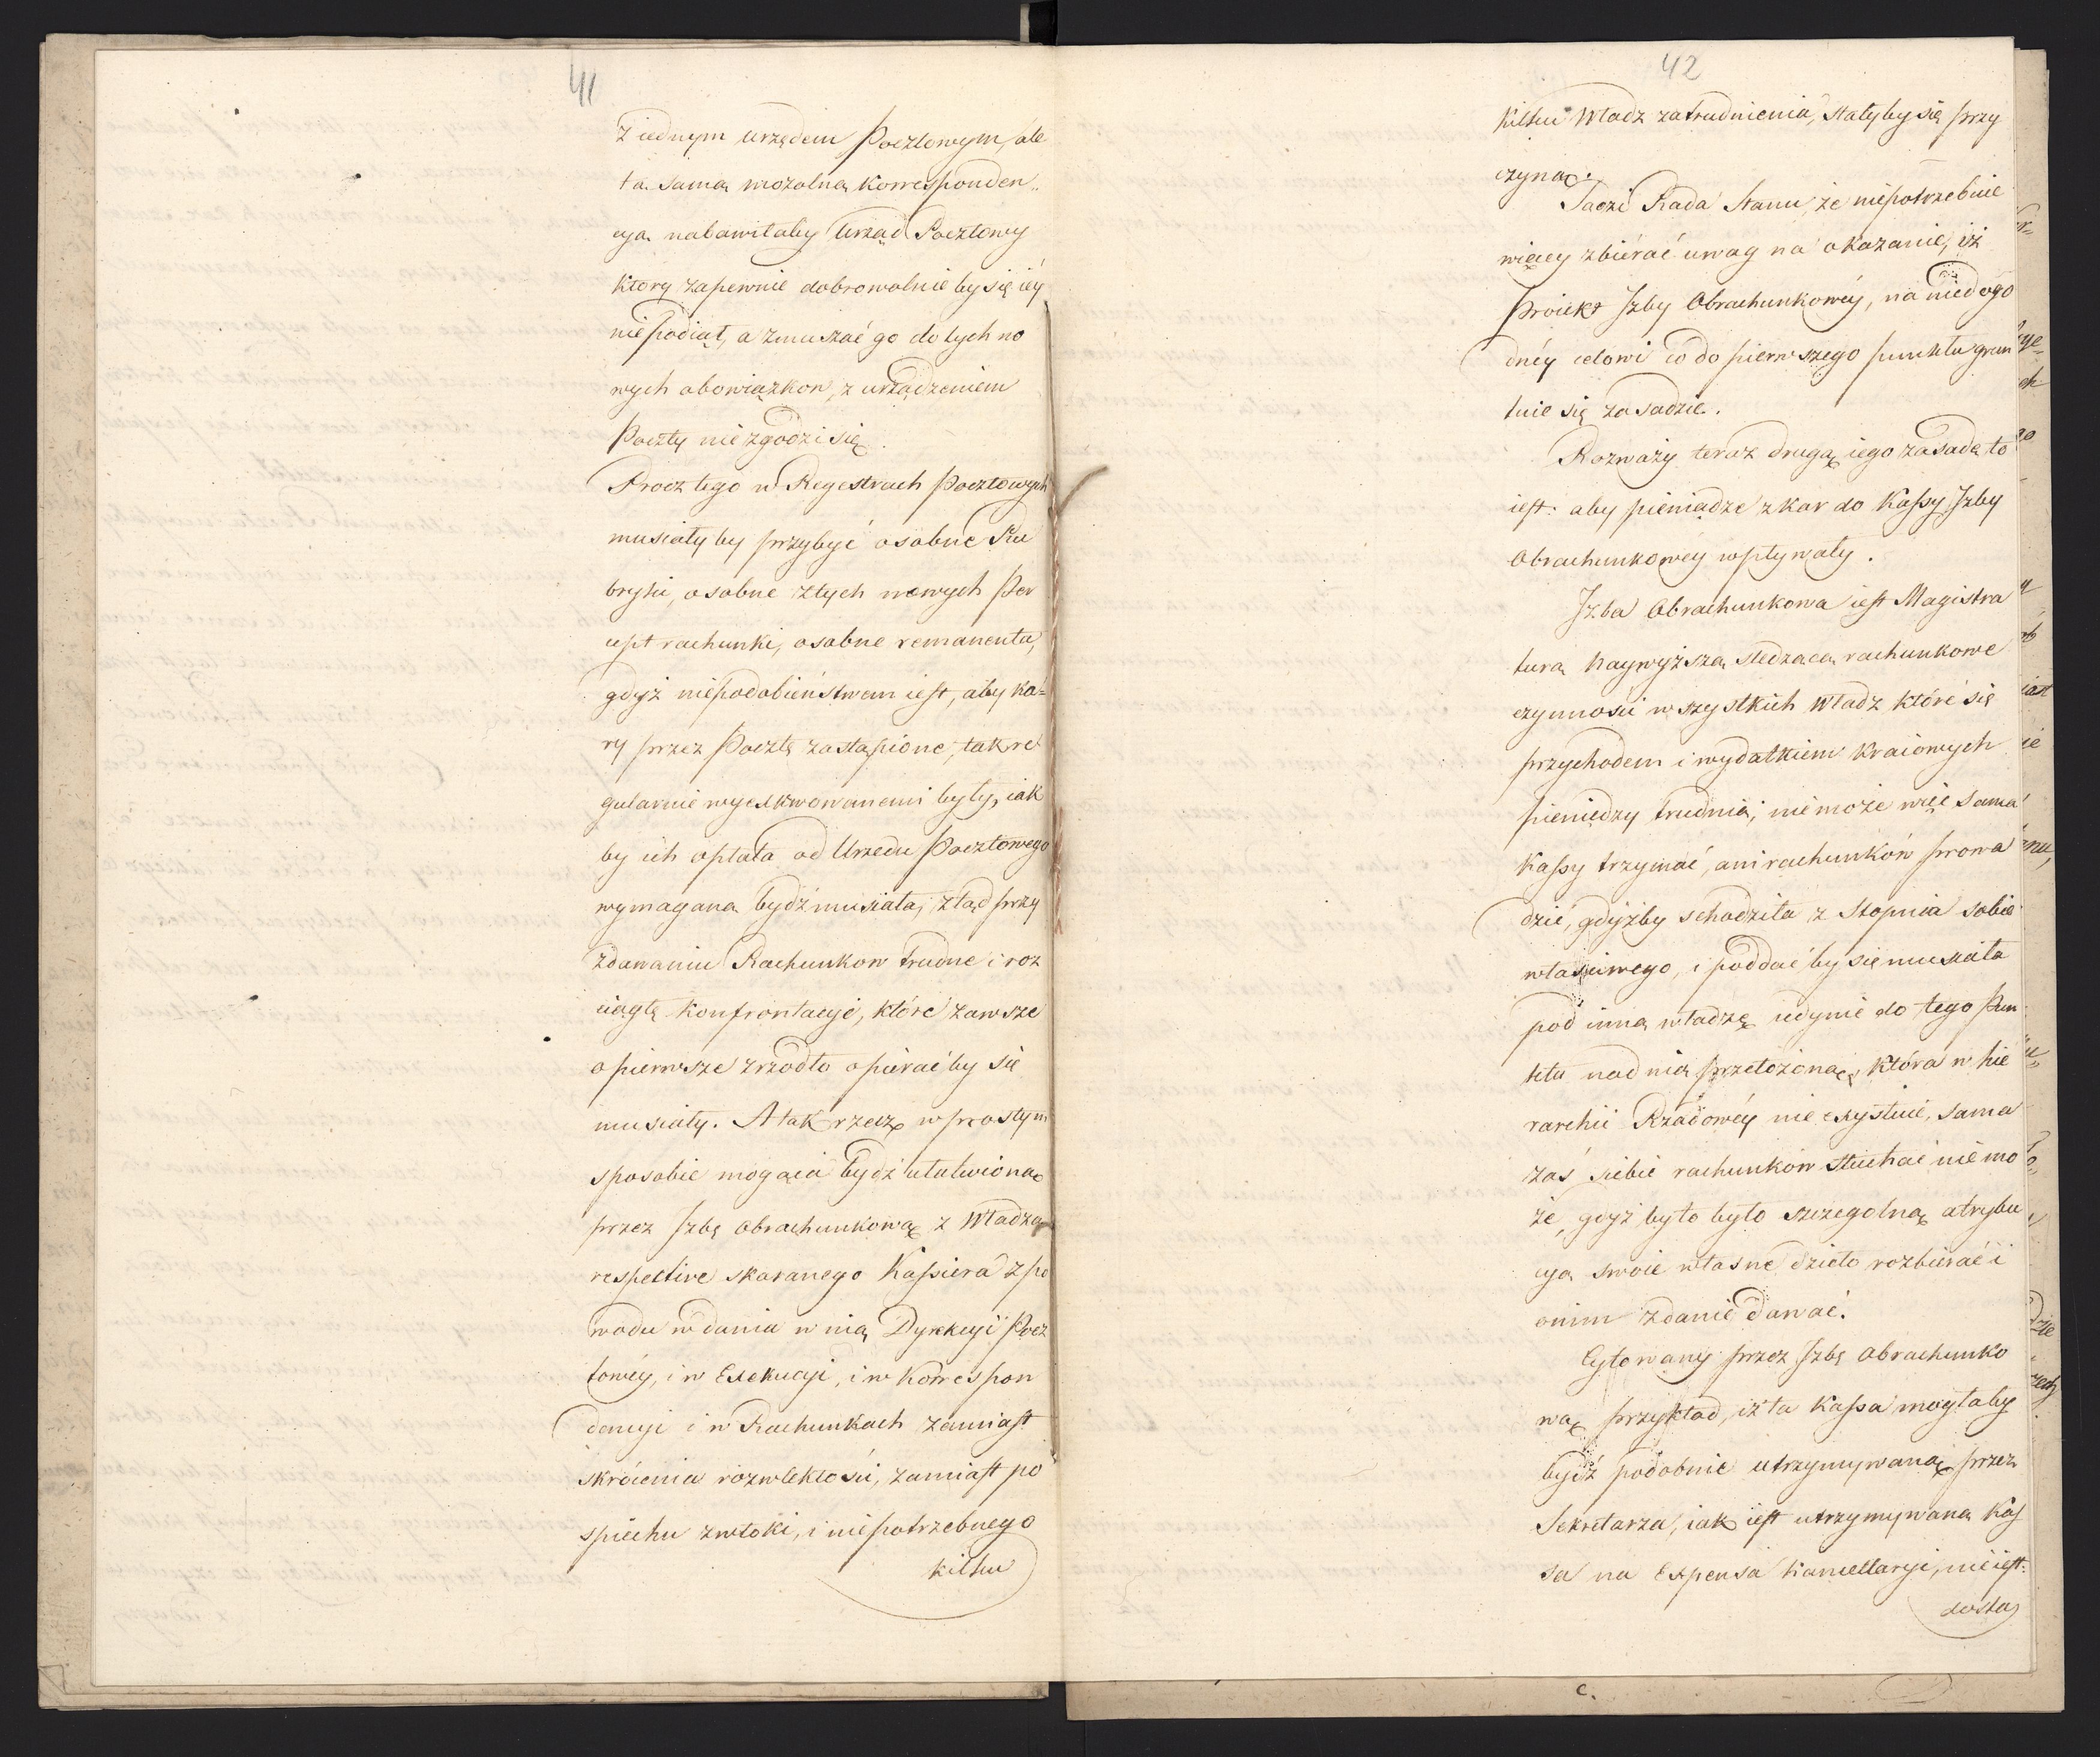 41
z iednym urzędem Pocztowym, ale
ta sama mozolna korrespónden„
cya nabawiłaby Urząd Pocztowy
który zapewnie dobrowolnie by się iéy
niepodiął, a zmuszać go do tych no
wych obowiązkow, z urządzeniem
Poczty niezgodzi się.
Procz tego w Regestrach Pocztowych
musiałyby przybyć osobne Ru
bryki, osobne z tych nowych Per
cept rachunki, osobne remanenta,
gdyż niepodobieństwem iest, aby ka=
ry przez Pocztę zastąpione, tak re
gularnie wyexekwowanemi były, iak
by ich opłata od Urzędu Pocztowego
wymagana bydź musiała, ztąd przy
zdawaniu Rachunkow trudne i roz
ciągłe konfrontacye, które zawsze
o pierwsze zrzodło opierać by się
musiały. A tak rzecz w prostym
sposobie mogąca bydź ułatwioną
przez Izbę Obrachunkową z Władzą
respective skaranego Kassiera z po
wodu wdania w nią Dyrekcyi Pocz
towéy, i w Exekucyi, i w Korrespon
dencyi i w Rachunkach zamiast
skrócenia rozwlekłości, zamiast po
spiechu zwłoki, i niepotrzebnego
kilku
42
kilku Władz zatrudnienia, stałyby się przy
czyną.
Sądzi Rada Stanu, że niepotrzebnie
więcey zbiérać uwag na okazanie, iż
Proiekt Izby Obrachunkowéy, na niedogo
dnéy celowi co do pierwszego punktu grun
tuie się zasadzie.
Rozważy teraz drugą iego zasadę to
iest: aby pieniądze z kar do Kassy Izby
Obrachunkowéy wpływały.
Izba Obrachunkowa iest Magistra
turą naywyższą sledzącą rachunkowe
czynności wszystkich Władz które się
przychodem i wydatkiem kraiowych
pieniędzy trudnią; nie może więc sama
Kassy trzymać, ani rachunków prowa
dzić, gdyżby schodziła z stopnia sobie
właściwego, i poddać by się musiała
pod inną władzę iedynie do tego Pun
ktu nad nią przełożoną, która w hie
rarchii Rządowéy nie exystuie, sama
zaś siebie rachunków słuchać nie mo
że, gdyż byto było szczegolną atrybu
cyą swoie własne dzieło rozbierać i
onim zdanie dawać.
Cytowany przez Izbę Obrachunko
wą przykład, iż ta Kassa mogłaby
bydź podobnie utrzymywaną przez
Sekretarza, iak iest utrzymywana Kas
sa na Expensa Kancellaryi, nie iest
dosta